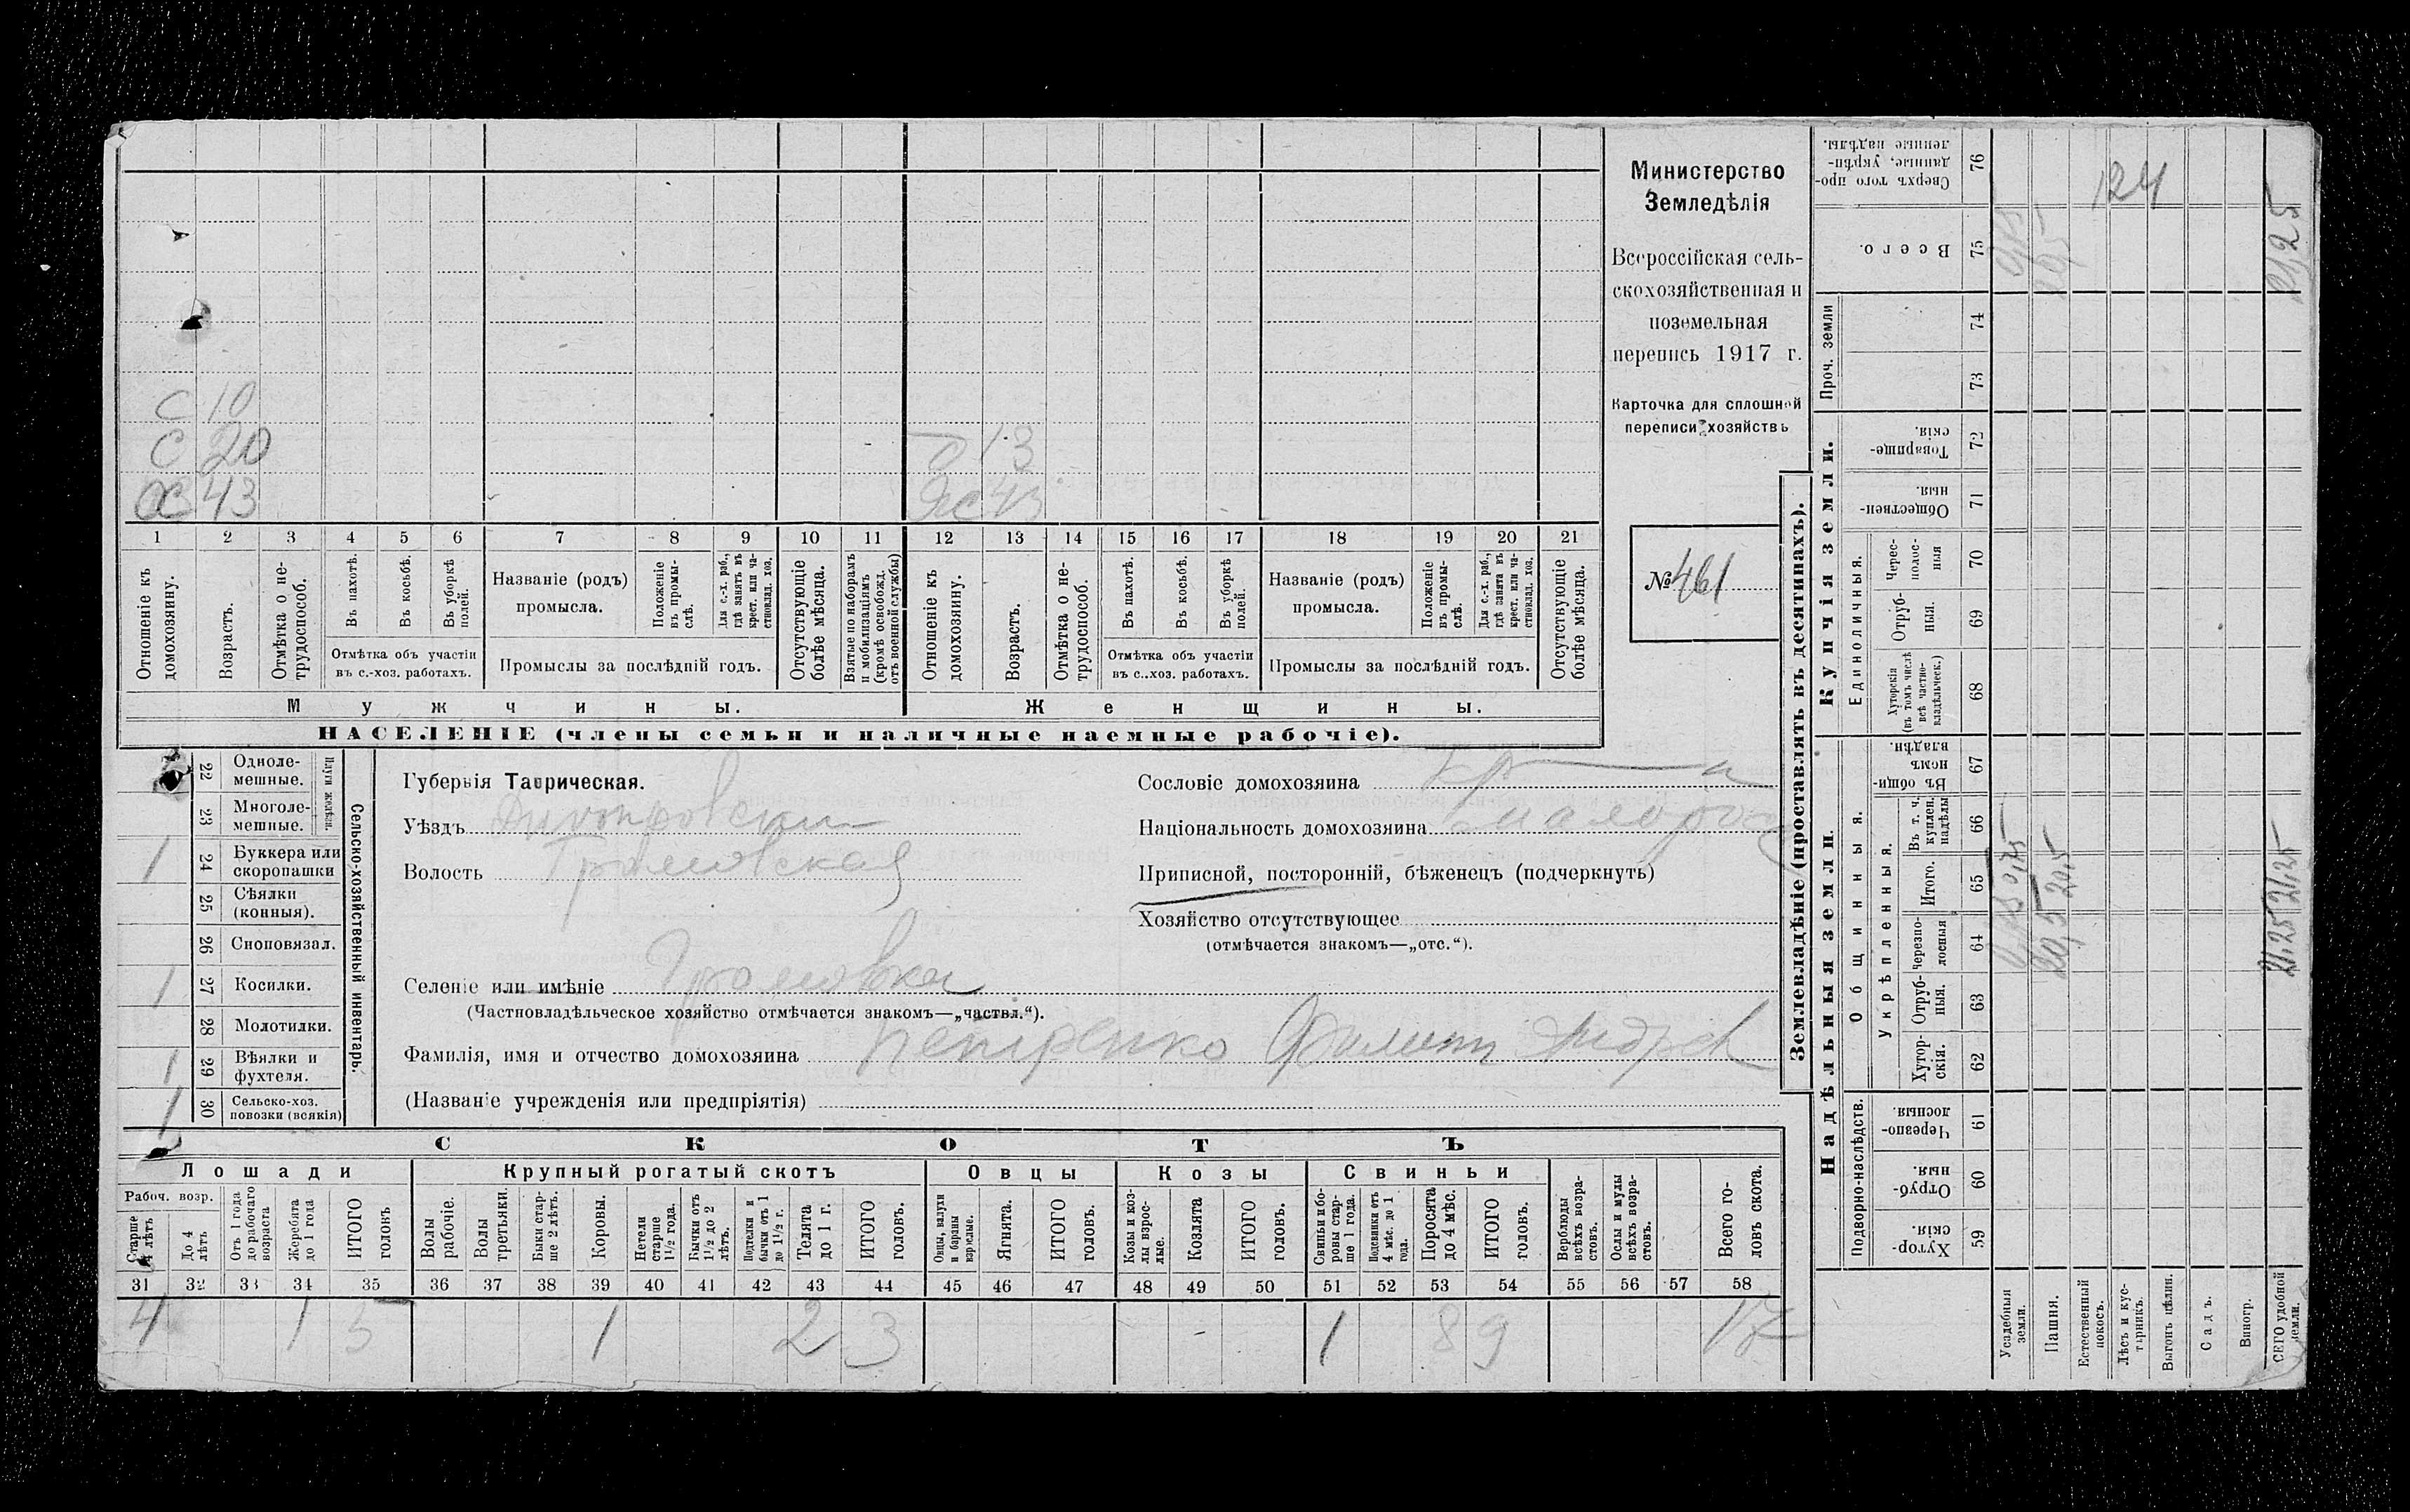 Министерство
Земледѣлія
Всероссійская сель-
скохозяйственная и
поземельная
перепись 1917 г.
Карточка для сплошной
переписи хозяйствъ
№ 461
С 10
С 20
Х 43
13
43
1 2 3 4 5 6 7 8 9 10 11 12 13 14 15 16 17 18 19 20 21
Отношеніе къ домохозяину.
Возрастъ.
Отмѣтка о не-трудоспособ.
Въ пахотѣ.
Въ косьбѣ.
Въ уборкѣ полей.
Отмѣтка объ участіи въ с.-хоз. работахъ.
Названіе (родъ) промысла.
Положеніе въ промы-слѣ.
Для с.-х. раб., гдѣ занятъ въ крест. или ча-стновлад. хоз.
Промыслы за послѣдній годъ.
Отсутствующіе болѣе мѣсяца.
Взятые по наборамъ и мобилизаціямъ (кромѣ освобожд. отъ военной службы)
Отношеніе къ домохозяину.
Возрастъ.
Отмѣтка о не-трудоспособ.
Въ пахотѣ.
Въ косьбѣ.
Въ уборкѣ полей.
Отмѣтка объ участіи въ с..хоз. работахъ.
Названіе (родъ) промысла.
Положеніе въ промы-слѣ.
Для с.-х. раб., гдѣ занята въ крест. или ча-стновлад. хоз.
Промыслы за послѣдній годъ.
Отсутствующіе болѣе мѣсяца.
Мужчины.
Женщины.
НАСЕЛЕНІЕ (члены семьи и наличные наемные рабочіе).
22 Одноле-мешные.
23 Многоле-мешные.
Плуги желѣзн.
1 24 Буккера или скоропашки
25 Сѣялки (конныя).
26 Сноповязал.
1 27 Косилки.
28 Молотилки.
1 29 Вѣялки и фухтеля.
1 30 Сельско-хоз. повозки (всякія)
Сельско-хозяйственный инвентарь.
Губернія Таврическая.
Уѣздъ Днѣпровскій
Волость Громовская
Селеніе или имѣніе Громовка
(Частновладѣльческое хозяйство отмѣчается знакомъ—„частвл.“).
Фамилія, имя и отчество домохозяина Петренко Филиппъ Андрѣев
(Названіе учрежденія или предпріятія)
Сословіе домохозяина кр—н
Національность домохозяина малорос
Приписной, посторонній, бѣженецъ (подчеркнуть)
Хозяйство отсутствующее
(отмѣчается знакомъ—„отс.“).
СКОТЪ
Лошади
Крупный рогатый скотъ
Овцы
Козы
Свиньи
Рабоч. возр.
Старше 4 лѣтъ
До 4 лѣтъ
Отъ 1 года до рабочаго возраста
Жеребята до 1 года
ИТОГО головъ
Волы рабочіе.
Волы третьяки.
Быки стар-ше 2 лѣтъ.
Коровы.
Нетели старше 1½ года.
Бычки отъ 1½ до 2 лѣтъ.
Подтелки и бычки отъ 1 до 1½ г.
Телята до 1 г.
ИТОГО головъ.
Овцы, валухи и бараны взрослые.
Ягнята.
ИТОГО головъ.
Козы и коз-лы взрос-лые.
Козлята
ИТОГО головъ.
Свиньи и бо-ровы стар-ше 1 года.
Подсвинки отъ 4 мѣс. до 1 года.
Поросята до 4 мѣс.
ИТОГО головъ.
Верблюды всѣхъ возра-стовъ.
Ослы и мулы всѣхъ возра-стовъ.
Всего го-ловъ скота.
31 32 33 34 35 36 37 38 39 40 41 42 43 44 45 46 47 48 49 50 51 52 53 54 55 56 57 58
4 1 5 1 2 3 1 8 9 17
Землевладѣніе (проставлять въ десятинахъ).
Надѣльныя земли.
Купчія земли.
Проч. земли
Подворно-наслѣдств.
Общинныя.
Укрѣпленныя.
Единоличныя.
59 Хутор-скія
60 Отруб-ныя.
61 Черезпо-лосныя
62 Хутор-скія.
63 Отруб-ныя.
64 Черезпо-лосныя
65 Итого.
66 Въ т. ч. куплен. надѣлы
67 Въ общин-номъ владѣн.
68 Хуторскія (въ томъ числѣ всѣ частно-владѣльческ.)
69 Отруб-ныя.
70 Черес-полос-ныя
71 Обществен-ныя.
72 Товарище-скія.
73
74
75 Всего.
76 Сверхъ того про-данные, укрѣп-ленные надѣлы.
Усадебныя земли. 0,75 0,75
Пашня. 20,5 20,5
Естественный покосъ.
Лѣсъ и кус-тарникъ.
Выгонъ цѣлин.
Садъ.
Виногр.
ВСЕГО удобной земли. 21,25 21,25 21,25
124